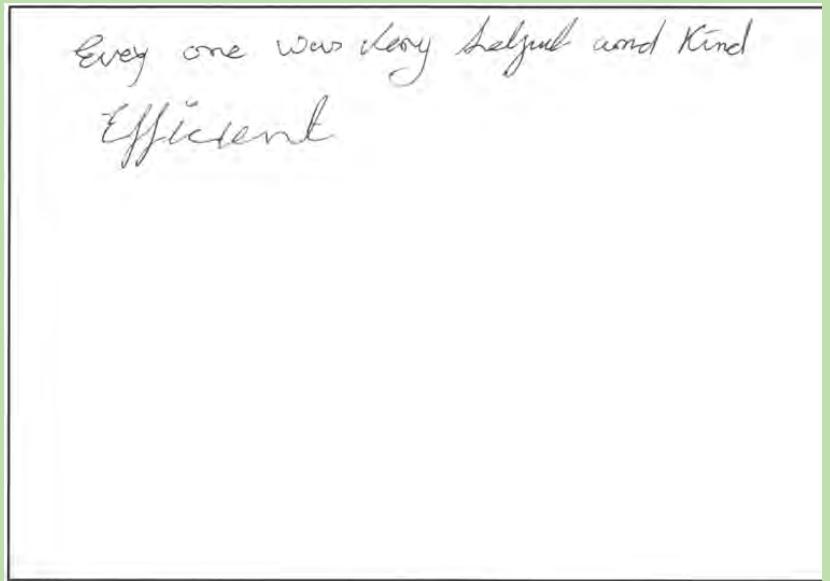 Evey one was very helpful and Kind
Efficient